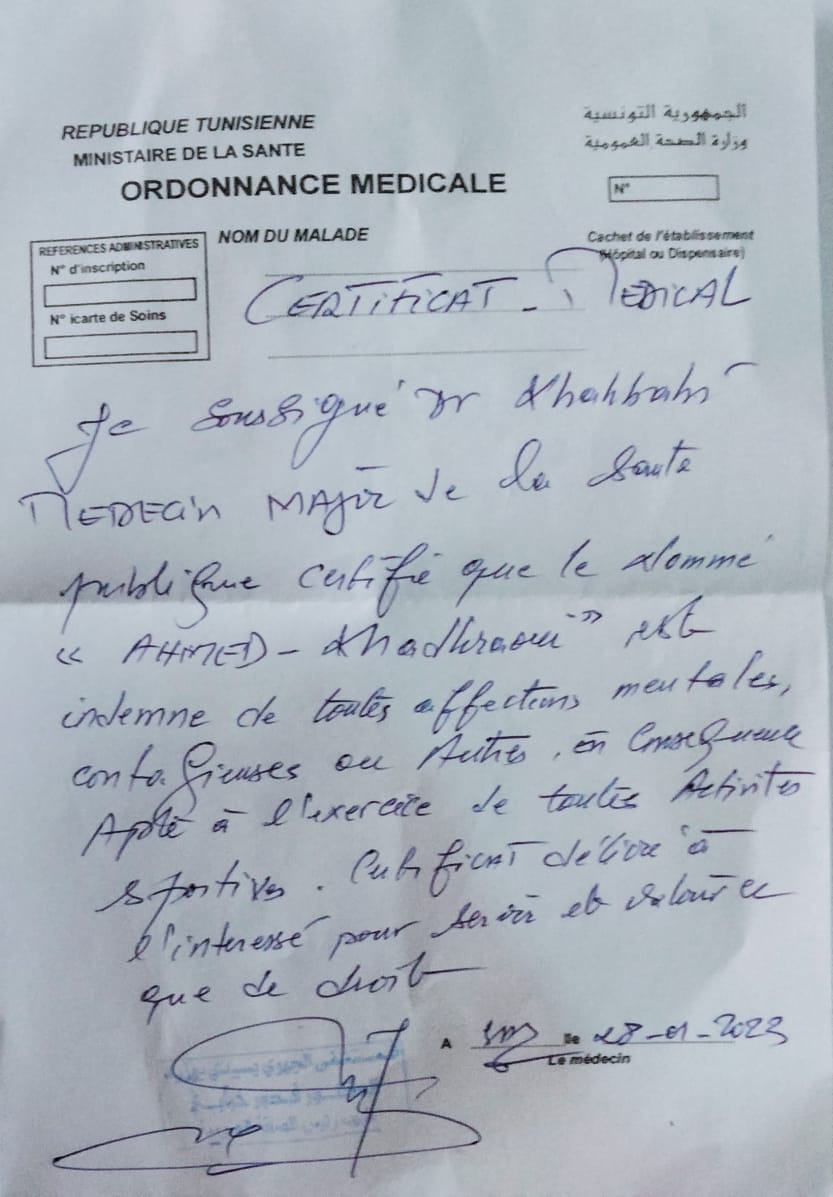 REPUBLIQUE TUNISIENNE
MINISTAIRE DE LA SANTE
ORDONNANCE MEDICALE
الجمهورية التونسية
وزارة الصحة العمومية
N°
REFERENCES ADMINISTRATIVES
N° d'inscription
N° icarte de Soins
NOM DU MALADE
Cachet de l'établissement
(Hôpital ou Dispensaire)
CERTIFICAT - MEDICAL
Je soussigné Dr
MEDECIN MAJOR de la santé
publique certifie que le nommé
« AHMED - Khadhraoui » est
indemne de toutes affections mentales,
contagieuses ou Autres, en consequence
Apte à l'exercice de toutes Activités
sportives. Certificat délivré à
l'interessé pour servir et valoir ce
que de droit
A le 28-01-2023
Le médecin